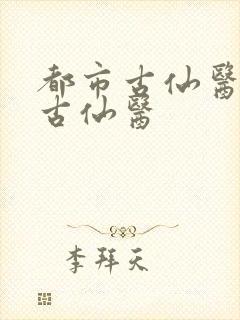 都市古仙醫
古仙醫
李拜天